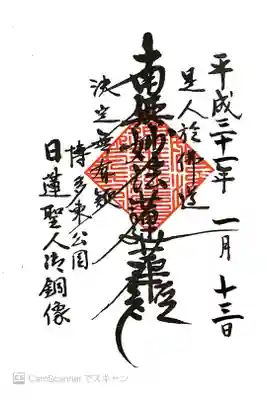 平成二十一年 一月 十三日
是人於佛道
南無妙法蓮華経
決定無有疑
博多東公園
日蓮聖人御銅像
CS CamScanner でスキャン